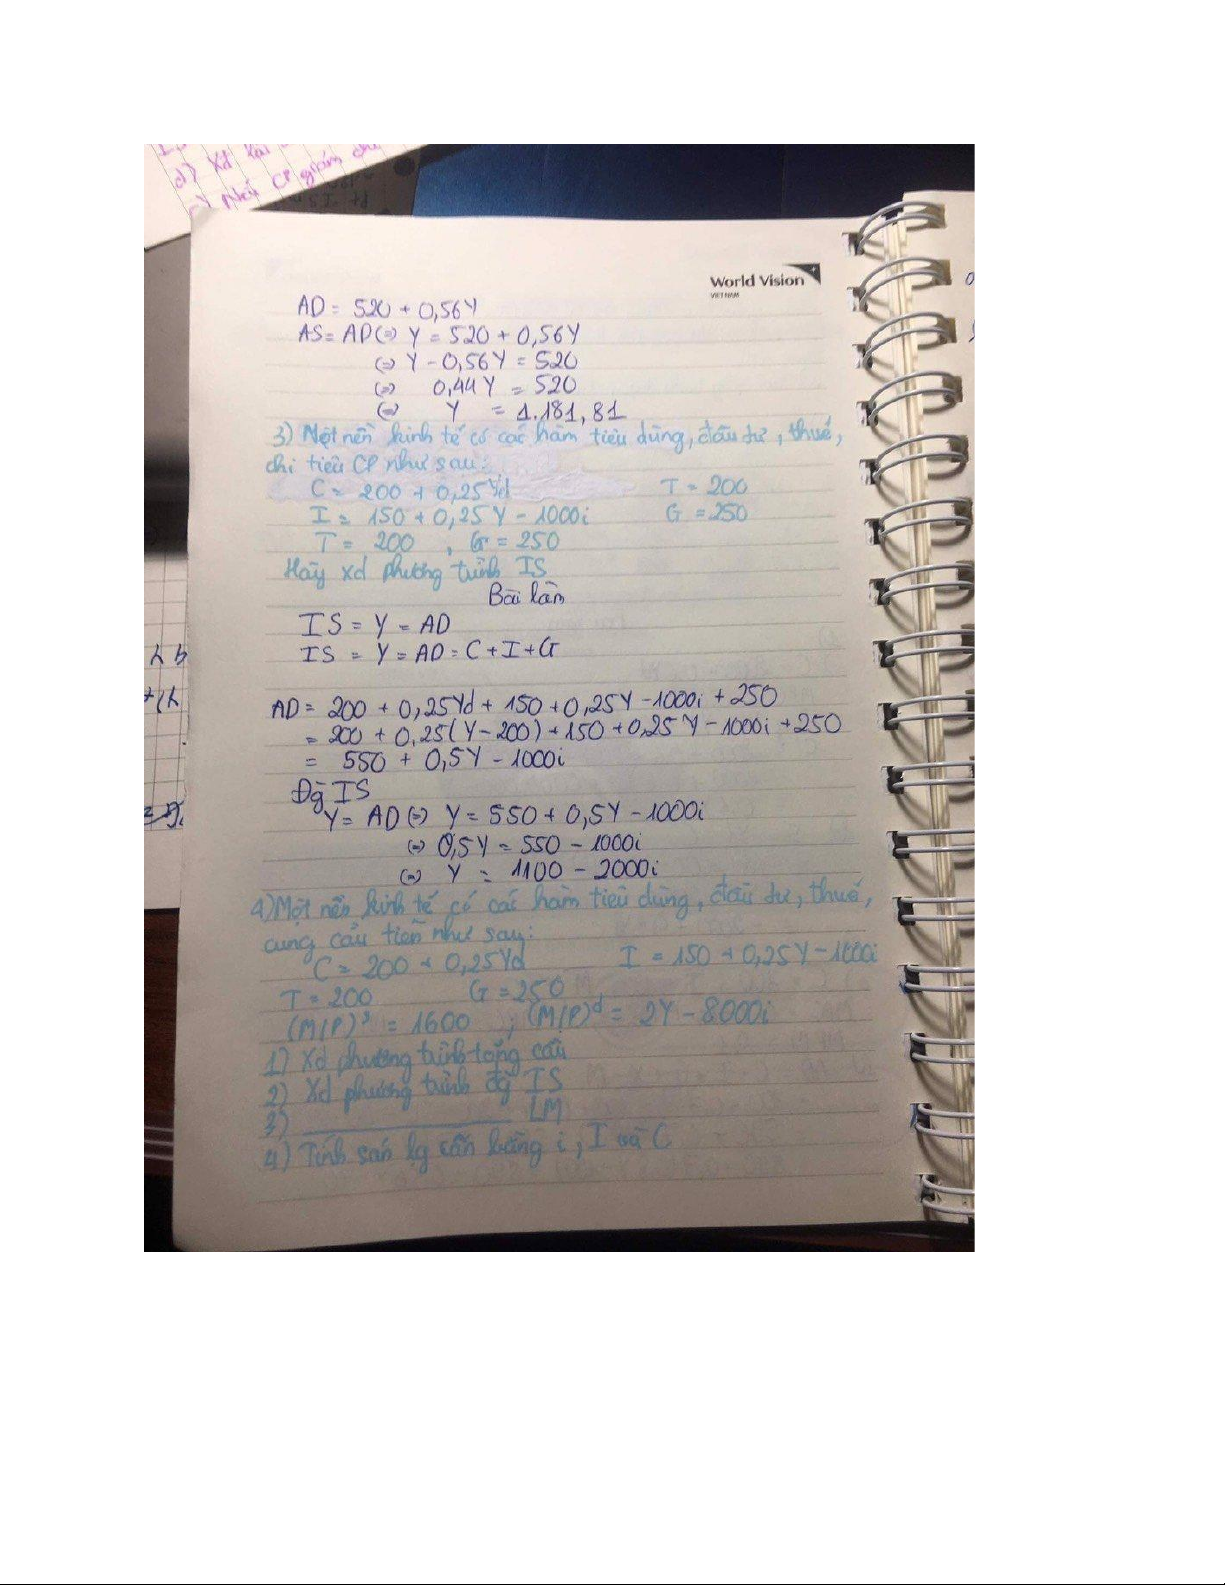 d) Xd
CP giảm
World Vision
VIET NAM
AD = 520 + 0,56Y
AS = AD (=) Y = 520 + 0,56Y
(=) Y - 0,56Y = 520
(=) 0,44Y = 520
(=) Y = 1.181,81
3) Một nền kinh tế có các hàm tiêu dùng, đầu tư, thuế,
chi tiêu CP như sau:
C = 200 + 0,25Yd T = 200
I = 150 + 0,25Y - 1000i G = 250
T = 200 , G = 250
Hãy xd phương trình IS
Bài làm
IS = Y = AD
IS = Y = AD = C + I + G
AD = 200 + 0,25Yd + 150 + 0,25Y - 1000i + 250
= 200 + 0,25(Y - 200) + 150 + 0,25Y - 1000i + 250
= 550 + 0,5Y - 1000i
Đg IS
Y = AD (=) Y = 550 + 0,5Y - 1000i
(=) 0,5Y = 550 - 1000i
(=) Y = 1100 - 2000i
4) Một nền kinh tế có các hàm tiêu dùng, đầu tư, thuế,
cung cầu tiền như sau:
C = 200 + 0,25Yd I = 150 + 0,25Y - 1000i
T = 200 G = 250
(M/P)ˢ = 1600 ; (M/P)ᵈ = 2Y - 8000i
1) Xd phương trình tổng cầu
2) Xd phương trình đg IS
3) ____________ LM
4) Tính sản lg cân bằng i, I và C